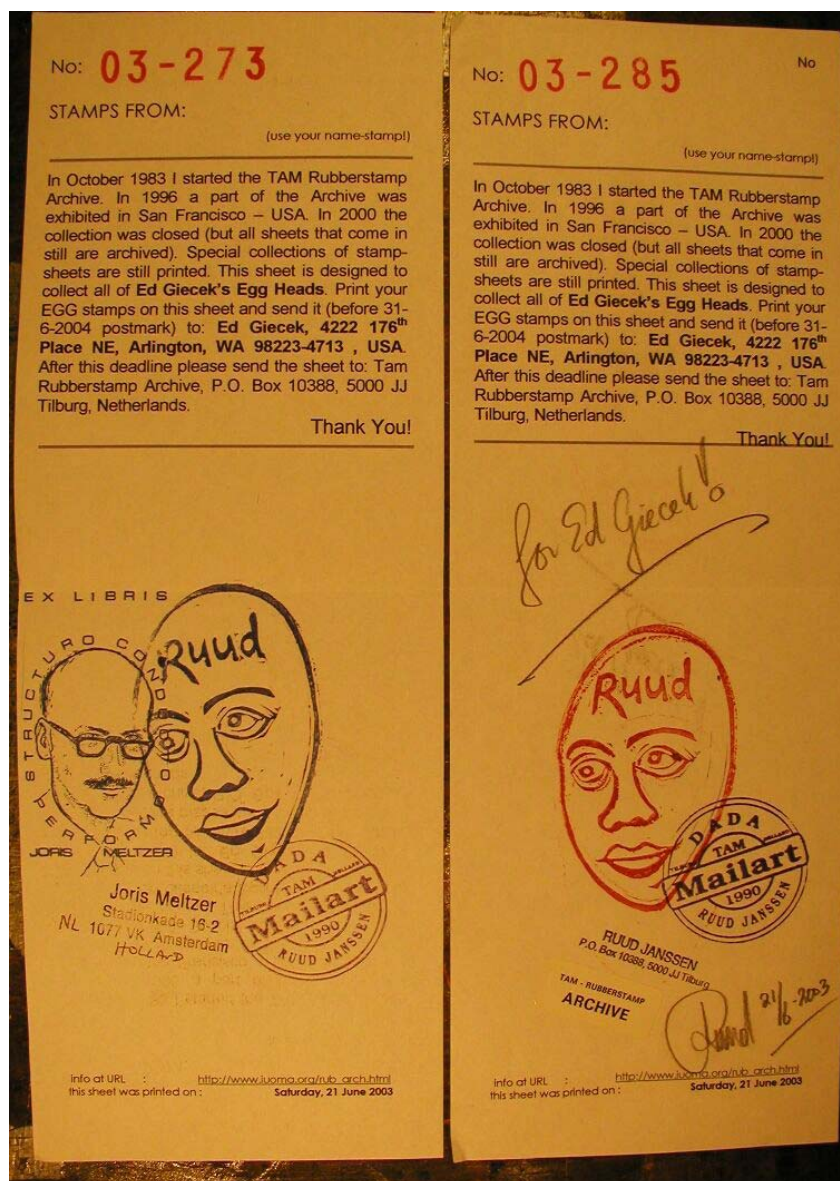 No: 03-273
STAMPS FROM:
(use your name-stamp!)
In October 1983 I started the TAM Rubberstamp
Archive. In 1996 a part of the Archive was
exhibited in San Francisco – USA. In 2000 the
collection was closed (but all sheets that come in
still are archived). Special collections of stamp-
sheets are still printed. This sheet is designed to
collect all of Ed Giecek's Egg Heads. Print your
EGG stamps on this sheet and send it (before 31-
6-2004 postmark) to: Ed Giecek, 4222 176th
Place NE, Arlington, WA 98223-4713 , USA.
After this deadline please send the sheet to: Tam
Rubberstamp Archive, P.O. Box 10388, 5000 JJ
Tilburg, Netherlands.
Thank You!
EX LIBRIS
STRUCTURO CONDOR
PERFORM
JORIS MELTZER
Ruud
DADA
TAM
Mailart
1990
RUUD JANSSEN
Joris Meltzer
Stadionkade 16-2
NL 1077 VK Amsterdam
HOLLAND
info at URL : http://www.iuoma.org/rub_arch.html
this sheet was printed on : Saturday, 21 June 2003
No
No: 03-285
STAMPS FROM:
(use your name-stamp!)
In October 1983 I started the TAM Rubberstamp
Archive. In 1996 a part of the Archive was
exhibited in San Francisco – USA. In 2000 the
collection was closed (but all sheets that come in
still are archived). Special collections of stamp-
sheets are still printed. This sheet is designed to
collect all of Ed Giecek's Egg Heads. Print your
EGG stamps on this sheet and send it (before 31-
6-2004 postmark) to: Ed Giecek, 4222 176th
Place NE, Arlington, WA 98223-4713 , USA.
After this deadline please send the sheet to: Tam
Rubberstamp Archive, P.O. Box 10388, 5000 JJ
Tilburg, Netherlands.
Thank You!
for Ed Giecek!
Ruud
DADA
TAM
Mailart
1990
RUUD JANSSEN
RUUD JANSSEN
P.O. Box 10388, 5000 JJ Tilburg
TAM - RUBBERSTAMP
ARCHIVE
Ruud 21/6-2003
info at URL : http://www.iuoma.org/rub_arch.html
this sheet was printed on : Saturday, 21 June 2003